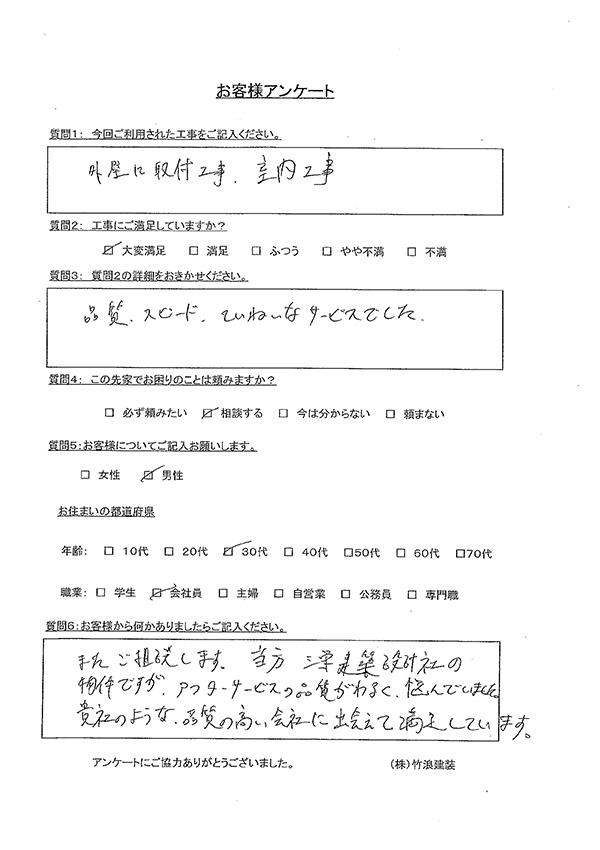 お客様アンケート
質問1: 今回ご利用された工事をご記入ください。
外壁に取付工事、室内工事
質問2: 工事にご満足していますか?
☑ 大変満足 □ 満足 □ ふつう □ やや不満 □ 不満
質問3: 質問2の詳細をおきかせください。
品質、スピード、ていねいなサービスでした。
質問4: この先家でお困りのことは頼みますか?
□ 必ず頼みたい ☑ 相談する □ 今は分からない □ 頼まない
質問5:お客様についてご記入お願いします。
□ 女性 ☑ 男性
お住まいの都道府県
年齢: □ 10代 □ 20代 ☑ 30代 □ 40代 □50代 □ 60代 □70代
職業: □ 学生 ☑ 会社員 □ 主婦 □ 自営業 □ 公務員 □ 専門職
質問6:お客様から何かありましたらご記入ください。
またご相談します。当方 建築設計社の
物件ですが、アフターサービスの品質がわるく、悩んでいました。
貴社のような、品質の高い会社に出会えて満足しています。
アンケートにご協力ありがとうございました。 (株)竹浪建装